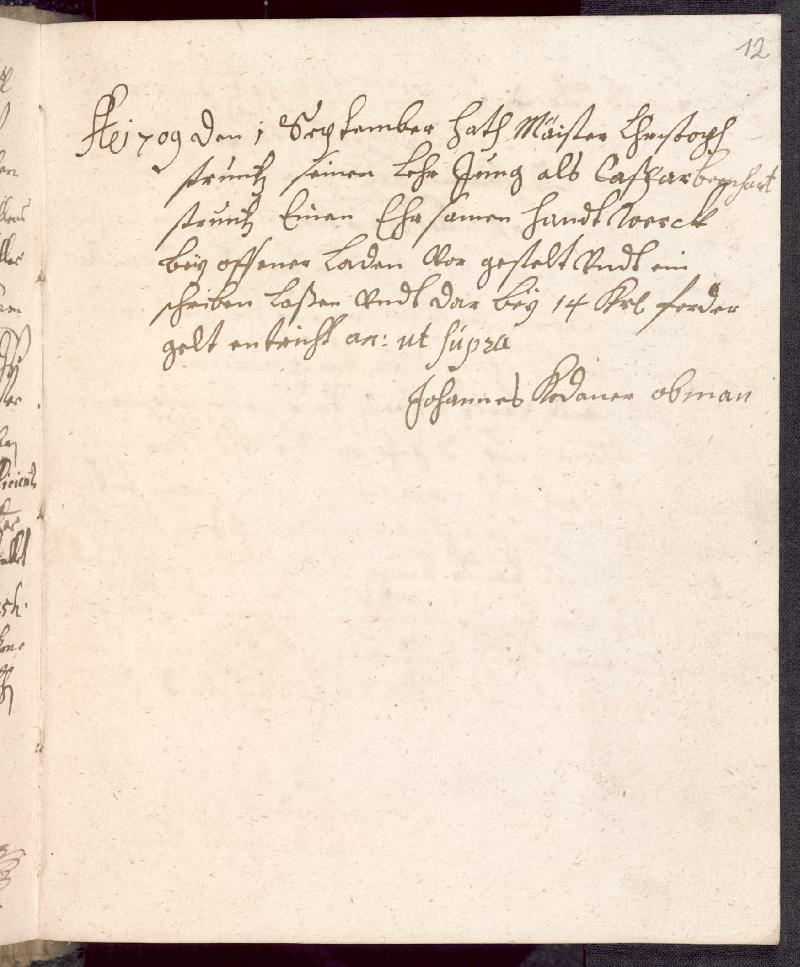 12
1709 den 1 September hath Maister Christoph
struntz seinen Lehr Jung als Casspar
struntz Einen Ehrsamen handtwerck
beÿ offener Laden vor gestelt vndt ein
schreiben Laßen vndt dar beÿ 14 forder
gelt entricht an: ut supra
Johannes obman